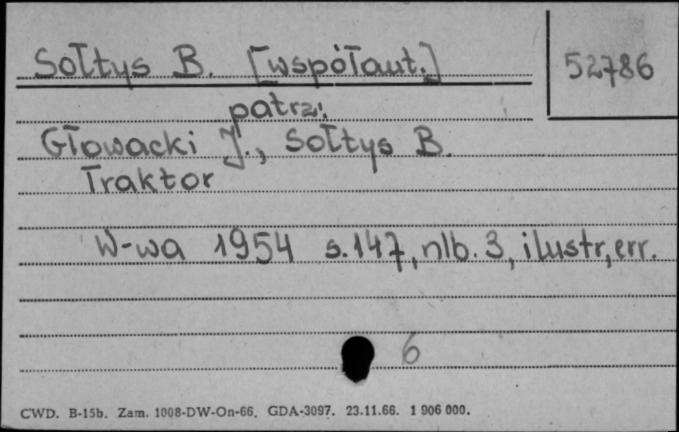 Sołtys B. [współaut.]
52786
patrz:
Głowacki J., Sołtys B.
Traktor
W-wa 1954 s.147, nlb. 3, ilustr, err.
6
CWD. B-15b. Zam. 1008-DW-On-66. GDA-3097. 23.11.66. 1 906 000.